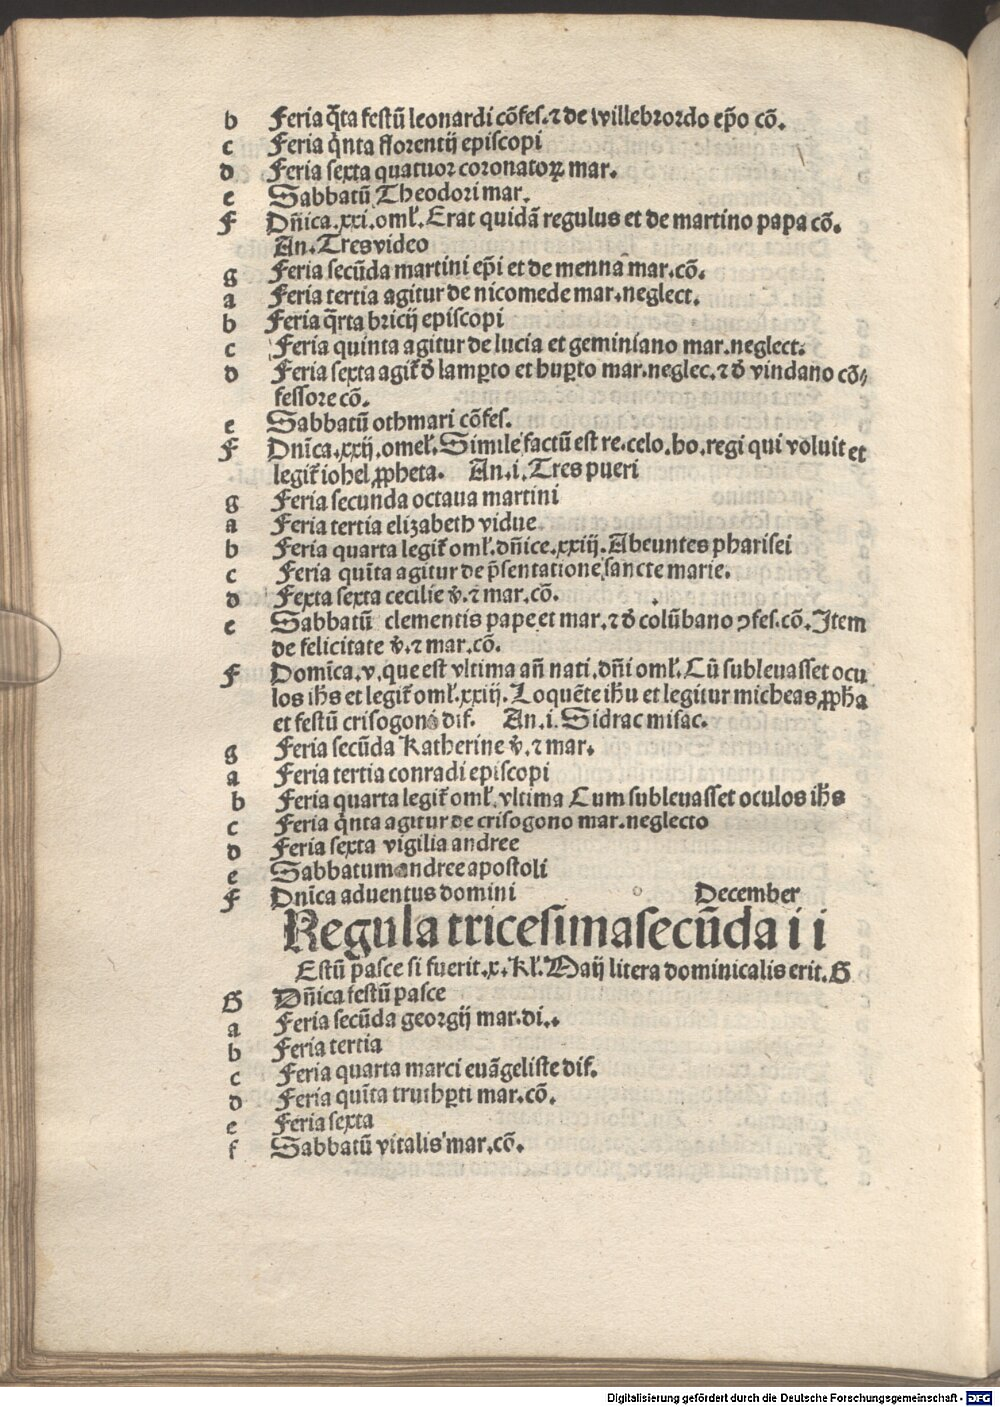 b Feria q̄rta festū leonardi cōfes.⁊ de willebrordo ep̄o cō.
c Feria q̇nta florentij episcopi
d Feria sexta quatuor coronatoꝝ mar.
e Sabbatū Theodori mar.
F Dn̄ica.xxi.omł. Erat quidā regulus et de martino papa cō.
An.Tres video
g Feria secūda martini ep̄i et de menna mar.cō.
a Feria tertia agitur de nicomede mar.neglect.
b Feria q̄rta bricij episcopi
c Feria quinta agitur de lucia et geminiano mar.neglect.
d Feria sexta agit̄ đ lamꝑto et huꝑto mar.neglec.⁊ đ vindano cō⸗
fessore cō.
e Sabbatū othmari cōfes.
F Dn̄ica.xxij.omeł. Simile factū est re.celo.ho.regi qui voluit et
legit̄ iohel ꝓpheta. An.i.Tres pueri
g Feria secunda octaua martini
a Feria tertia elizabeth vidue
b Feria quarta legit̄ omł.dn̄ice.xxiij.Abeuntes pharisei
c Feria quīta agitur de p̄sentatione sancte marie.
d Fexta sexta cecilie v̄.⁊ mar.cō.
e Sabbatū clementis pape et mar.⁊ đ colūbano ꝯfes.cō.Item
de felicitate v̄.⁊ mar.cō.
F Domīca.v.que est vltima an̄ nati.dn̄i omł.Cū subleuasset ocu
los ih̄s et legit̄ omł.xxiij.Loquēte ih̄u et legitur micheas ꝓpha
et festū crisogoni dif. An.i.Sidrac misac.
g Feria secūda Katherine v̄.⁊ mar.
a Feria tertia conradi episcopi
b Feria quarta legit̄ omł.vltima Cum subleuasset oculos ih̄s
c Feria q̇nta agitur de crisogono mar.neglecto
d Feria sexta vigilia andree
e Sabbatum andree apostoli
F Dnīca aduentus domini December
Regula tricesimasecūda i i
Estū pasce si fuerit.x.kł.Maij litera dominicalis erit.G
G Dn̄ica festū pasce
a Feria secūda georgij mar.di..
b Feria tertia
c Feria quarta marci euāgeliste dif.
d Feria quīta truthꝑti mar.cō.
e Feria sexta
f Sabbatū vitalis mar.cō.
Digitalisierung gefördert durch die Deutsche Forschungsgemeinschaft - DFG